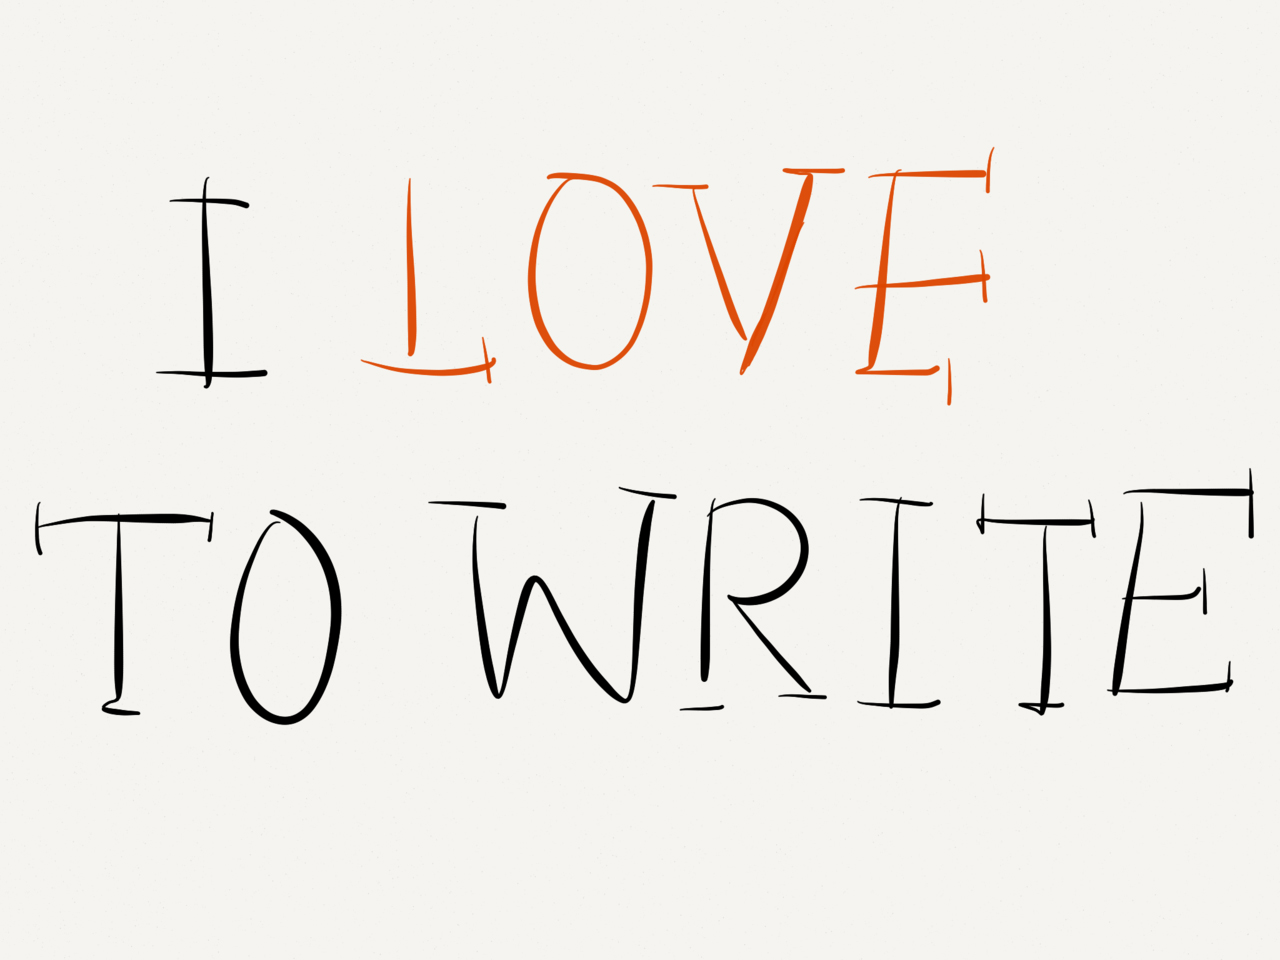 I LOVE
TO WRITE